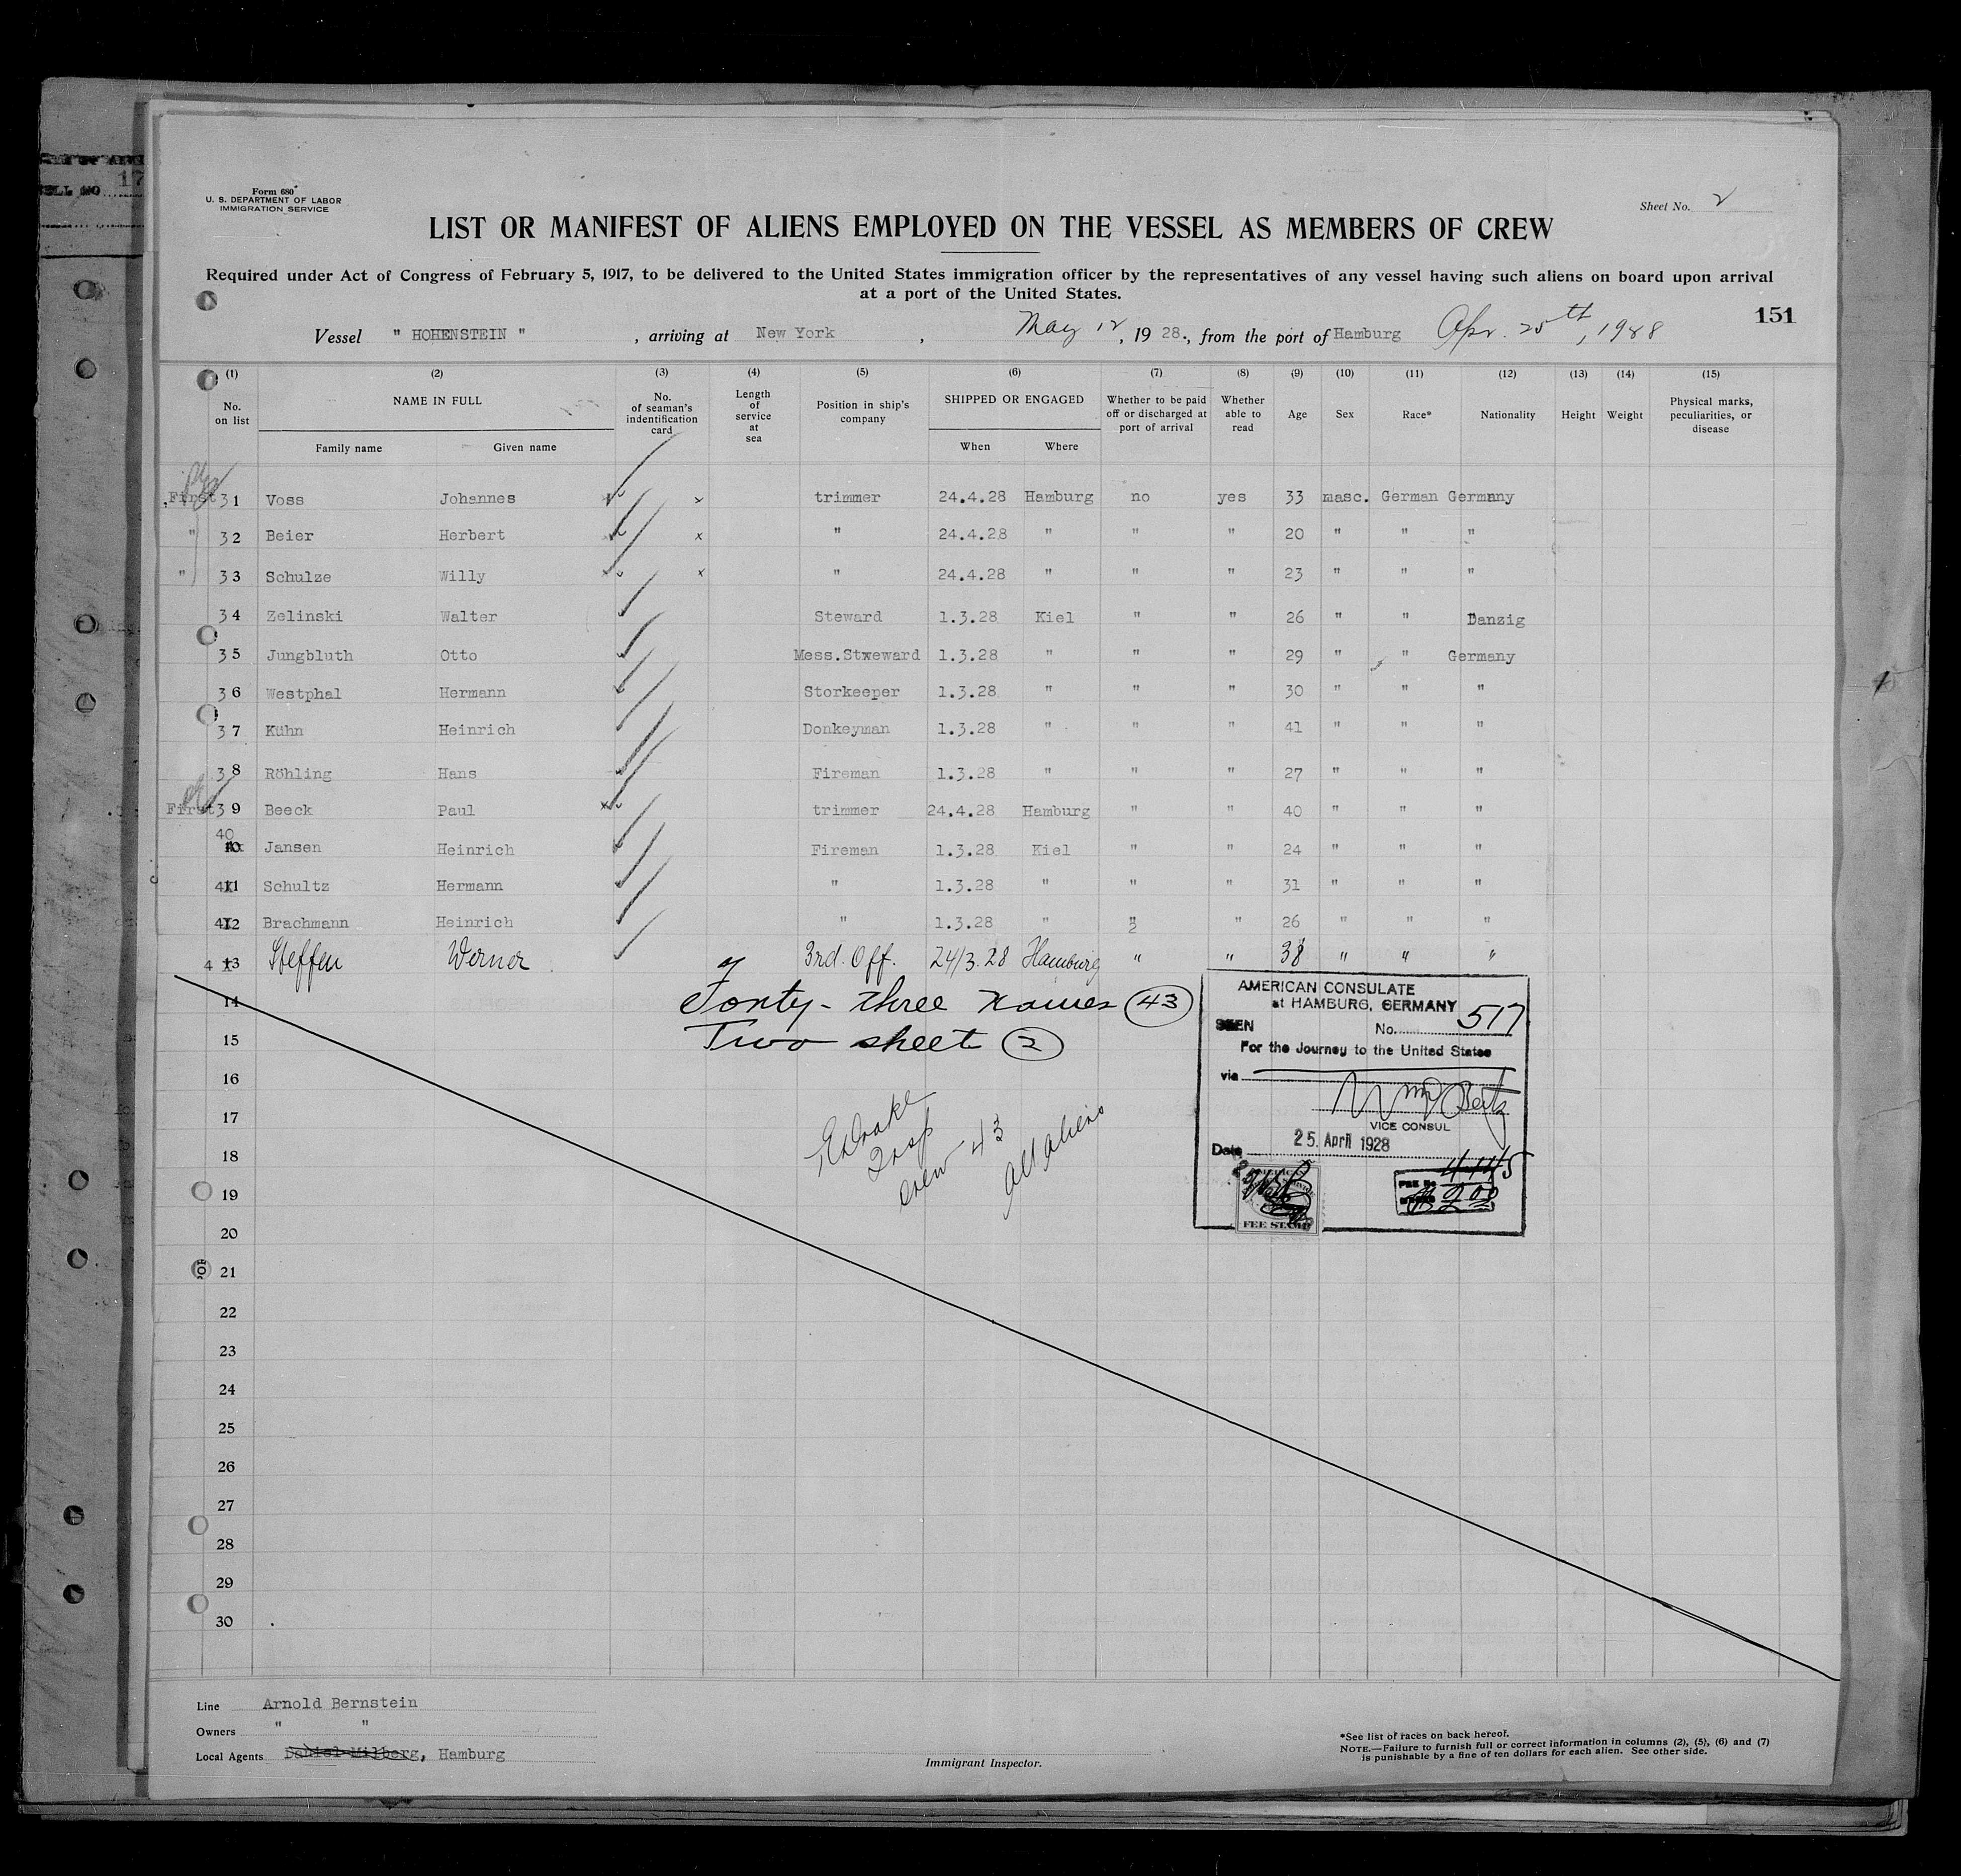 Form 680
U. S. DEPARTMENT OF LABOR
IMMIGRATION SERVICE
Sheet No. 2
LIST OR MANIFEST OF ALIENS EMPLOYED ON THE VESSEL AS MEMBERS OF CREW
Required under Act of Congress of February 5, 1917, to be delivered to the United States immigration officer by the representatives of any vessel having such aliens on board upon arrival
at a port of the United States.
151
Vessel " HOHENSTEIN " , arriving at New York , May 12, 19 28., from the port of Hamburg Apr. 25th, 1928
(1) (2) (3) (4) (5) (6) (7) (8) (9) (10) (11) (12) (13) (14) (15)
No. on list NAME IN FULL Family name Given name No. of seaman's indentification card Length of service at sea Position in ship's company SHIPPED OR ENGAGED When Where Whether to be paid off or discharged at port of arrival Whether able to read Age Sex Race* Nationality Height Weight Physical marks, peculiarities, or disease
First 31 Voss Johannes x trimmer 24.4.28 Hamburg no yes 33 masc. German Germany
" 32 Beier Herbert x " 24.4.28 " " " 20 " " "
" 33 Schulze Willy x " 24.4.28 " " " 23 " " "
34 Zelinski Walter Steward 1.3.28 Kiel " " 26 " " Danzig
35 Jungbluth Otto Mess.Stxeward 1.3.28 " " " 29 " " Germany
36 Westphal Hermann Storkeeper 1.3.28 " " " 30 " " "
37 Kühn Heinrich Donkeyman 1.3.28 " " " 41 " " "
38 Röhling Hans Fireman 1.3.28 " " " 27 " " "
First 39 Beeck Paul trimmer 24.4.28 Hamburg " " 40 " " "
40 Jansen Heinrich Fireman 1.3.28 Kiel " " 24 " " "
41 Schultz Hermann " 1.3.28 " " " 31 " " "
42 Brachmann Heinrich " 1.3.28 " " " 26 " " "
43 Steffen Werner 3rd. Off. 24/3.28 Hamburg " " 38 " " "
14
Forty-three names (43)
15
Two sheet (2)
16
17
18
19
20
21
22
23
24
25
26
27
28
29
30
crew 43
all aliens
AMERICAN CONSULATE
at HAMBURG, GERMANY
SEEN No. 517
For the Journey to the United States
via
VICE CONSUL
Date 25. April 1928
FEE STAMP
Line Arnold Bernstein
Owners " "
Local Agents Daniel Milberg, Hamburg
Immigrant Inspector.
*See list of races on back hereof.
NOTE.—Failure to furnish full or correct information in columns (2), (5), (6) and (7)
is punishable by a fine of ten dollars for each alien. See other side.